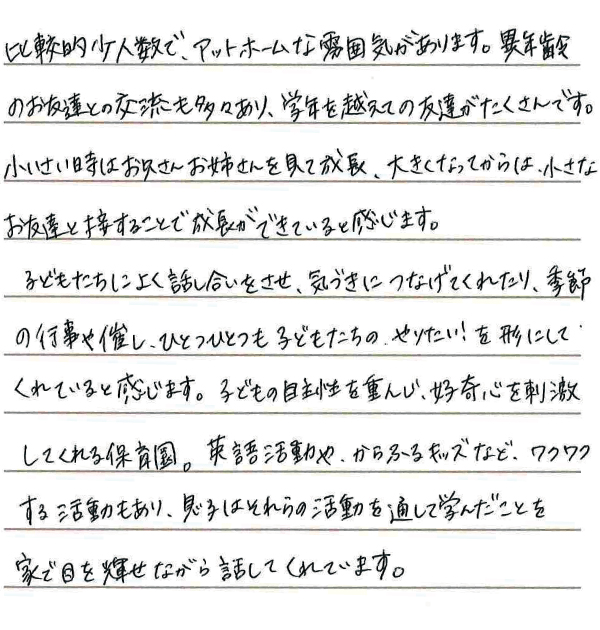 比較的少人数で、アットホームな雰囲気があります。異年齢
のお友達との交流も多々あり、学年を越えての友達がたくさんです。
小いさい時はお兄さんお姉さんを見て成長、大きくなってからは、小さな
お友達と接することで成長ができていると感じます。
子どもたちによく話し合いをさせ、気づきにつなげてくれたり、季節
の行事や催し、ひとつひとつも子どもたちの、やりたい!を形にして
くれていると感じます。子どもの自主性を重んじ、好奇心を刺激
してくれる保育園。英語活動や、からふるキッズなど、ワクワク
する活動もあり、息子はそれらの活動を通して学んだことを
家で目を輝せながら話してくれています。